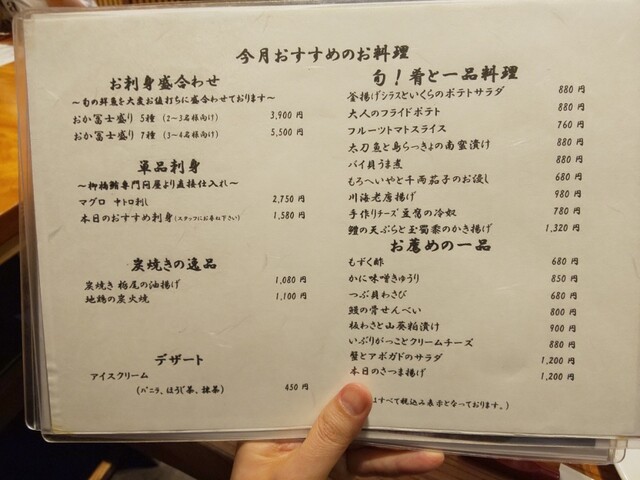 今月おすすめのお料理
お刺身盛合わせ
～旬の鮮魚を大変お値打ちに盛合わせております～
おか冨士盛り 5種 (2～3名様向け) 3,900 円
おか冨士盛り 7種 (3～4名様向け) 5,500 円
単品刺身
～柳橋鮪専門問屋より直接仕入れ～
マグロ 中トロ刺し 2,750 円
本日のおすすめ刺身 (スタッフにお尋ね下さい) 1,580 円
炭焼きの逸品
炭焼き 栃尾の油揚げ 1,080 円
地鶏の炭火焼 1,100 円
デザート
アイスクリーム
(バニラ、ほうじ茶、抹茶) 450 円
旬！肴と一品料理
釜揚げシラスといくらのポテトサラダ 880 円
大人のフライドポテト 880 円
フルーツトマトスライス 760 円
太刀魚と島らっきょの南蛮漬け 880 円
バイ貝うま煮 880 円
もろへいやと千両茄子のお浸し 680 円
川海老唐揚げ 980 円
手作りチーズ豆腐の冷奴 780 円
鱧の天ぷらと玉蜀黍のかき揚げ 1,320 円
お薦めの一品
もずく酢 680 円
かに味噌きゅうり 850 円
つぶ貝わさび 680 円
鰻の骨せんべい 800 円
板わさと山葵粕漬け 900 円
いぶりがっことクリームチーズ 880 円
蟹とアボガドのサラダ 1,200 円
本日のさつま揚げ 1,200 円
はすべて税込み表示となっております。)